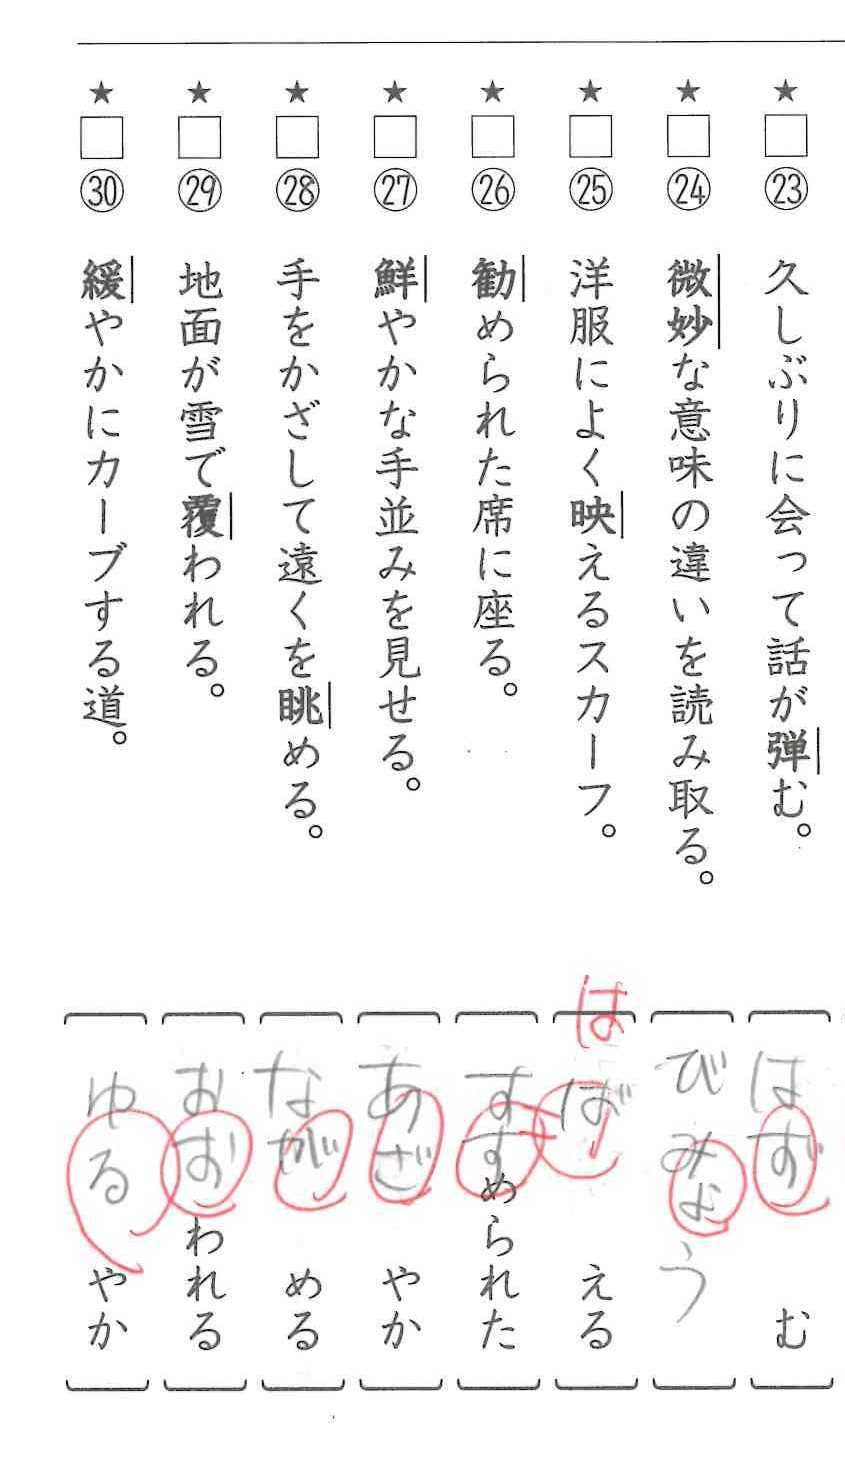 ★ □ ㉓ 久しぶりに会って話が弾む。
はずむ
★ □ ㉔ 微妙な意味の違いを読み取る。
びみょう
★ □ ㉕ 洋服によく映えるスカーフ。
は
ばえる
★ □ ㉖ 勧められた席に座る。
すすめられた
★ □ ㉗ 鮮やかな手並みを見せる。
あざやか
★ □ ㉘ 手をかざして遠くを眺める。
ながめる
★ □ ㉙ 地面が雪で覆われる。
おおわれる
★ □ ㉚ 緩やかにカーブする道。
ゆるやか